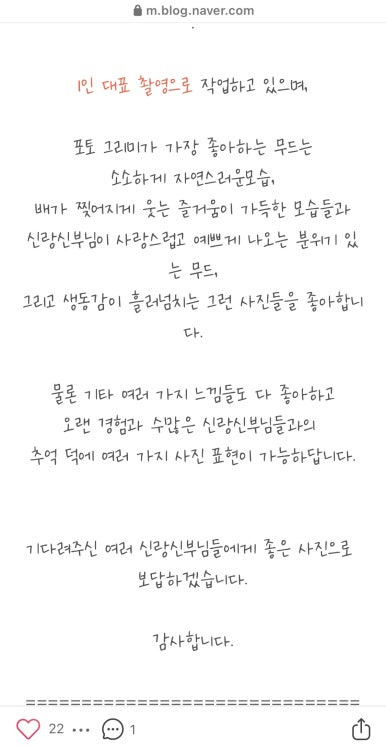 m.blog.naver.com
.
1인 대표 촬영으로 작업하고 있으며,
포토 그리미가 가장 좋아하는 무드는
소소하게 자연스러운모습,
배가 찢어지게 웃는 즐거움이 가득한 모습들과
신랑신부님이 사랑스럽고 예쁘게 나오는 분위기 있
는 무드,
그리고 생동감이 흘러넘치는 그런 사진들을 좋아합니
다.
물론 기타 여러 가지 느낌들도 다 좋아하고
오랜 경험과 수많은 신랑신부님들과의
추억 덕에 여러 가지 사진 표현이 가능하답니다.
기다려주신 여러 신랑신부님들에게 좋은 사진으로
보답하겠습니다.
감사합니다.
==============================
22 ••• 1